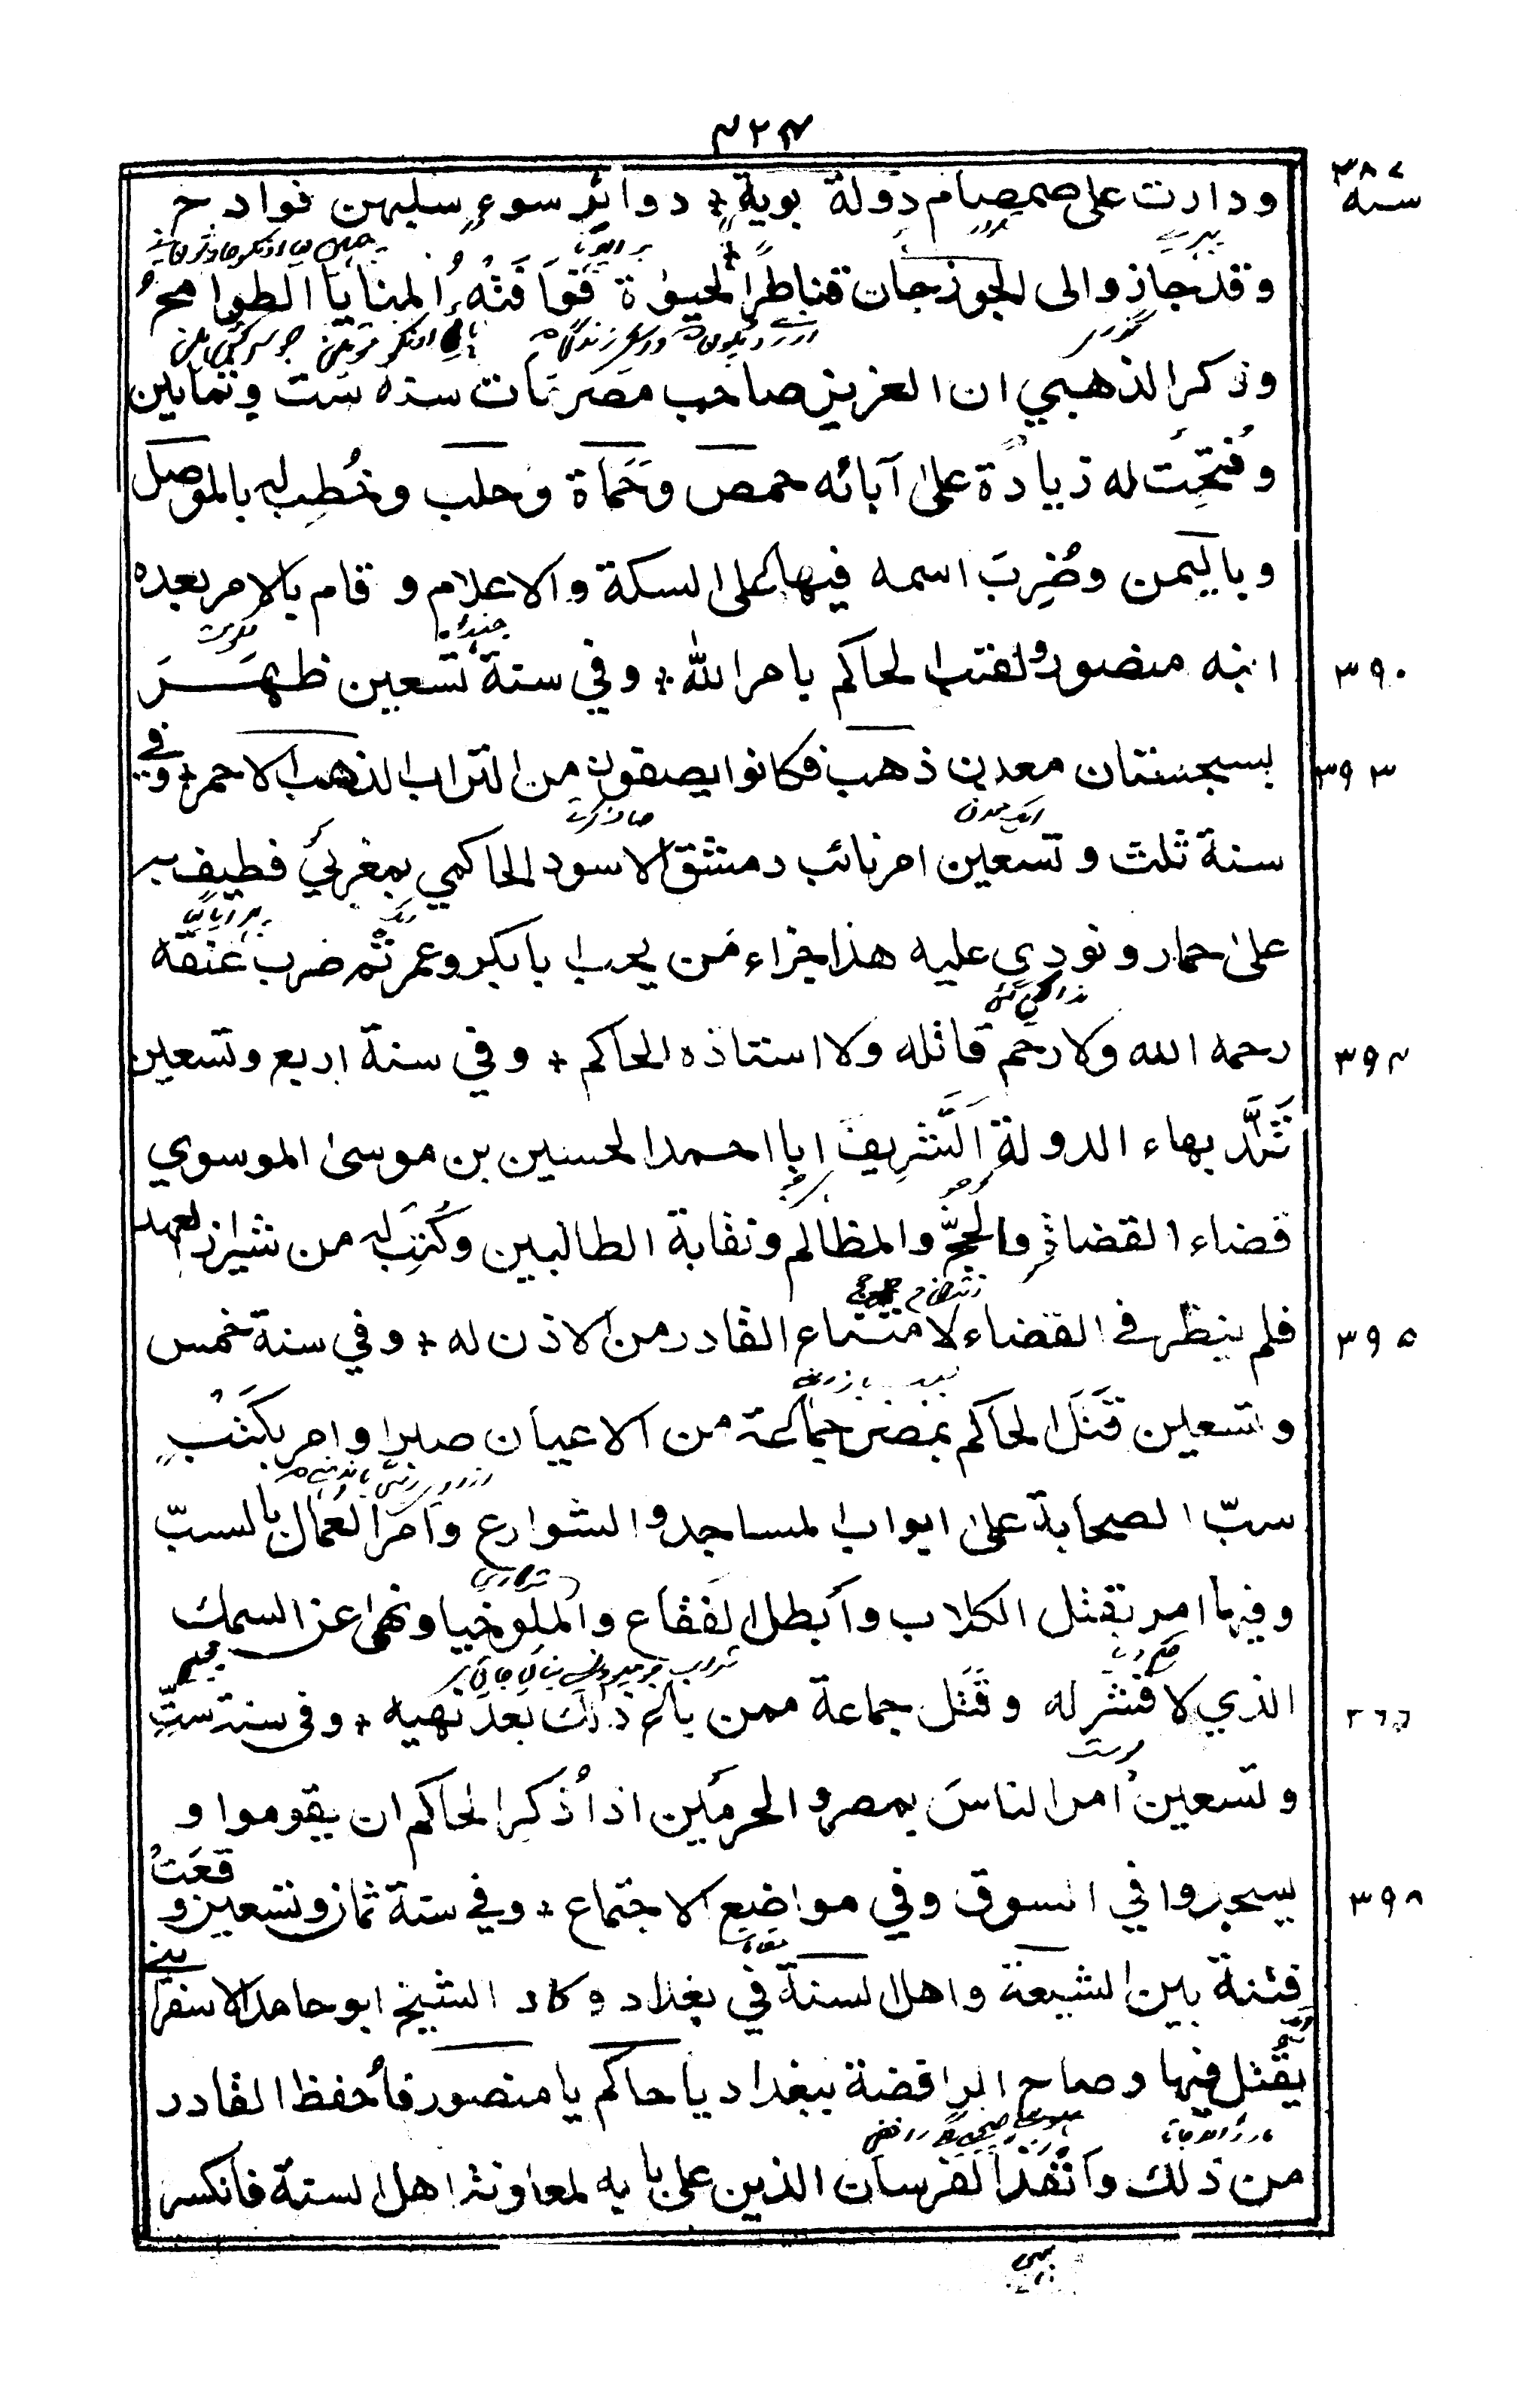 ٤٢٣
سنه ٣٨٧
ودارت على صمصام دولة بوية ٭ دوائر سوء سلبهن فوادح
وقد جاز والى الجوزجان قناطر الحيوة فوافته المنايا الطوامح
وذكر الذهبي ان العزيز صاحب مصر مات سنة ست وثمانين
وفُتِحت له زيادة على آبائه حمص وحَماة وحلب وخُطِب له بالموصل
وباليمن وضُرِبَ اسمه فيها على السكة والاعلام و قام بالامر بعده
ابنه منصور ولقب الحاكم بامر الله ٭ وفي سنة تسعين ظهَرَ
٣٩٠
بسجستان معدن ذهب فكانوا يصفون من التراب الذهب الاحمر ٭ وفي
٣٩٣
سنة ثلث وتسعين امر نائب دمشق الاسود الحاكمي بمغربيّ فطيف به
على حمار ونودي عليه هذا جزاء مَن يحب ابابكر وعمر ثم ضرب عنقه
رحمه الله ولا رحم قاتله ولا استاذه الحاكم ٭ وفي سنة اربع وتسعين
٣٩٤
قلّد بهاء الدولة الشريف ابا احمد الحسين بن موسى الموسوي
قضاء القضاة والحجّ والمظالم ونقابة الطالبين وكُتِبَ له من شيراز العهد
فلم ينظر في القضاء لامتناع القادر من الاذن له ٭ وفي سنة خمس
٣٩٥
وتسعين قَتَلَ الحاكم بمصر جماعة من الاعيان صبرا وامر بكَتْبِ
سبّ الصحابة على ابواب المساجد والشوارع وامر العمال بالسبّ
وفيها امر بقتل الكلاب وأبطل الفقاع والملوخيا ونهى عن السمك
الذي لا قشر له وقَتَل جماعة ممن باع ذلك بعد نهيه ٭ وفي سنة ستّ
٣٩٦
وتسعين امر الناسَ بمصر والحرمَين اذا ذُكر الحاكم ان يقوموا و
يسجدوا في السوق وفي مواضع الاجتماع ٭ وفي سنة ثمان وتسعين وقعَتْ
٣٩٨
فتنة بين الشيعة واهل السنة في بغداد وكاد الشيخ ابو حامد الاسفرايني
يقتل فيها وصاح الرافضة ببغداد يا حاكم يا منصور فأُحفظ القادر
من ذلك وأنفذ الفرسان الذين على بابه لمعاونة اهل السنة فانكسر